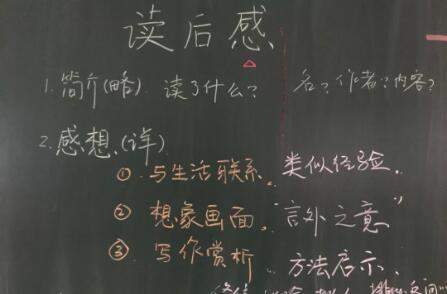 读后感
1. 简介(略). 读了什么? 名? 作者? 内容?
2. 感想(详)
① 与生活联系。类似经验.
② 想象画面。"言外之意"
③ 写作赏析 方法启示.